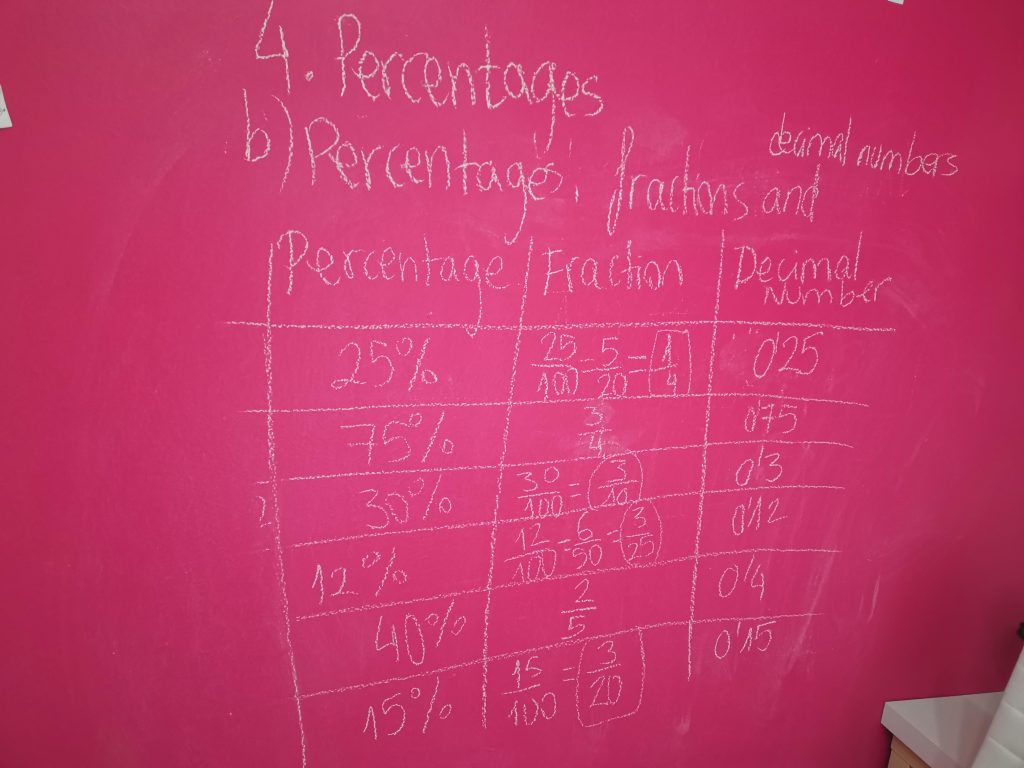 4. Percentages
b) Percentages, fractions and decimal numbers
Percentage Fraction Decimal Number
25% 25/100 = 5/20 = 1/4 0'25
75% 3/4 0'75
30% 30/100 = 3/10 0'3
12% 12/100 = 6/50 = 3/25 0'12
40% 2/5 0'4
15% 15/100 = 3/20 0'15